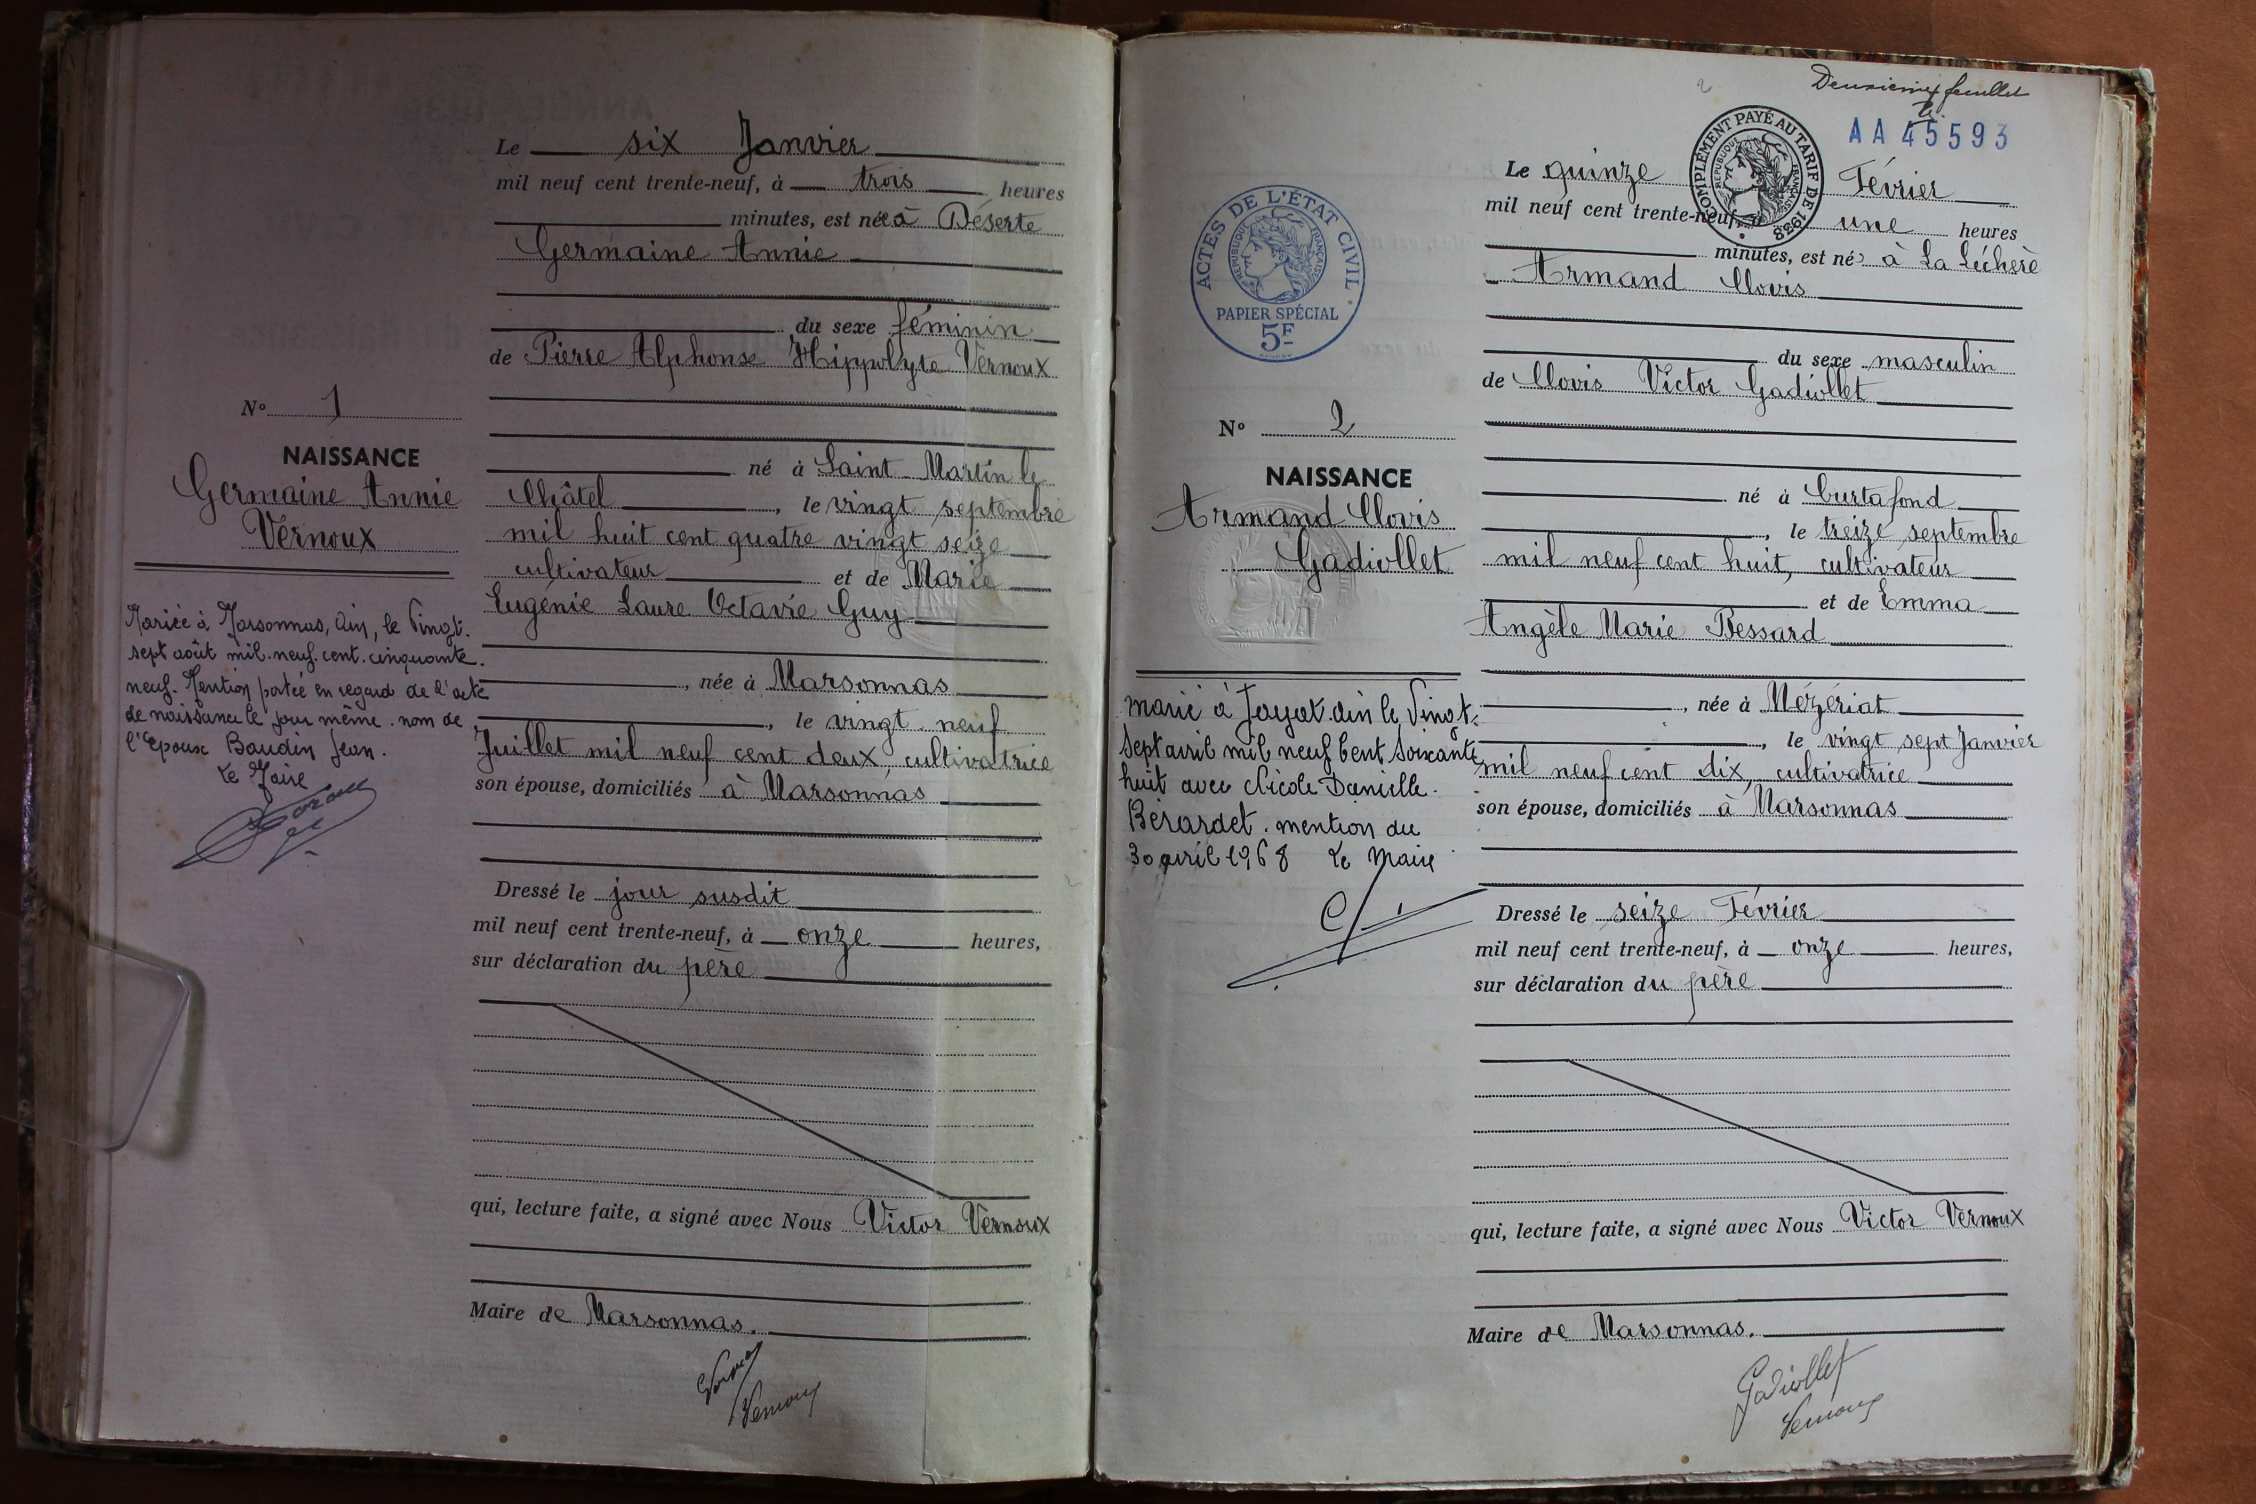 Le six Janvier
mil neuf cent trente-neuf, à trois heures
minutes, est née à Déserte
Germaine Annie
du sexe féminin
de Pierre Alphonse Hippolyte Vernoux
né à Saint Martin le
Châtel, le vingt septembre
mil huit cent quatre vingt seize
cultivateur et de Marie
Eugénie Laure Octavie Guy
, née à Marsonnas
, le vingt neuf
Juillet mil neuf cent deux, cultivatrice
son épouse, domiciliés à Marsonnas
Dressé le jour susdit
mil neuf cent trente-neuf, à onze heures,
sur déclaration du père
qui, lecture faite, a signé avec Nous Victor Vernoux
Maire de Marsonnas.
Vernoux
N° 1
NAISSANCE
Germaine Annie
Vernoux
Mariée à Marsonnas, Ain, le Vingt.
sept août mil.neuf.cent.cinquante.
neuf. Mention portée en regard de l'acte
de naissance le jour même. nom de
l'Epoux Baudin Jean.
Le Maire
Deuxième feuillet
AA 45593
COMPLÉMENT PAYÉ AU TARIF DE 1938
RÉPUBLIQUE FRANÇAISE
Le quinze Février
mil neuf cent trente-neuf, à une heures
minutes, est né à La Léchère
Armand Clovis
du sexe masculin
de Clovis Victor Gadiollet
né à Curtafond
, le treize septembre
mil neuf cent huit, cultivateur
et de Emma
Angèle Marie Bessard
, née à Mézériat
, le vingt sept Janvier
mil neuf cent dix, cultivatrice
son épouse, domiciliés à Marsonnas
Dressé le seize Février
mil neuf cent trente-neuf, à onze heures,
sur déclaration du père
qui, lecture faite, a signé avec Nous Victor Vernoux
Maire de Marsonnas.
Gadiollet
Vernoux
ACTES DE L'ÉTAT CIVIL
RÉPUBLIQUE FRANÇAISE
PAPIER SPÉCIAL
5F
N° 2
NAISSANCE
Armand Clovis
Gadiollet
marié à Jayat.ain le Vingt.
Sept avril mil neuf Cent Soixante
huit avec Nicole Danielle.
Bérardet. mention du
30 avril 1968 Le Maire